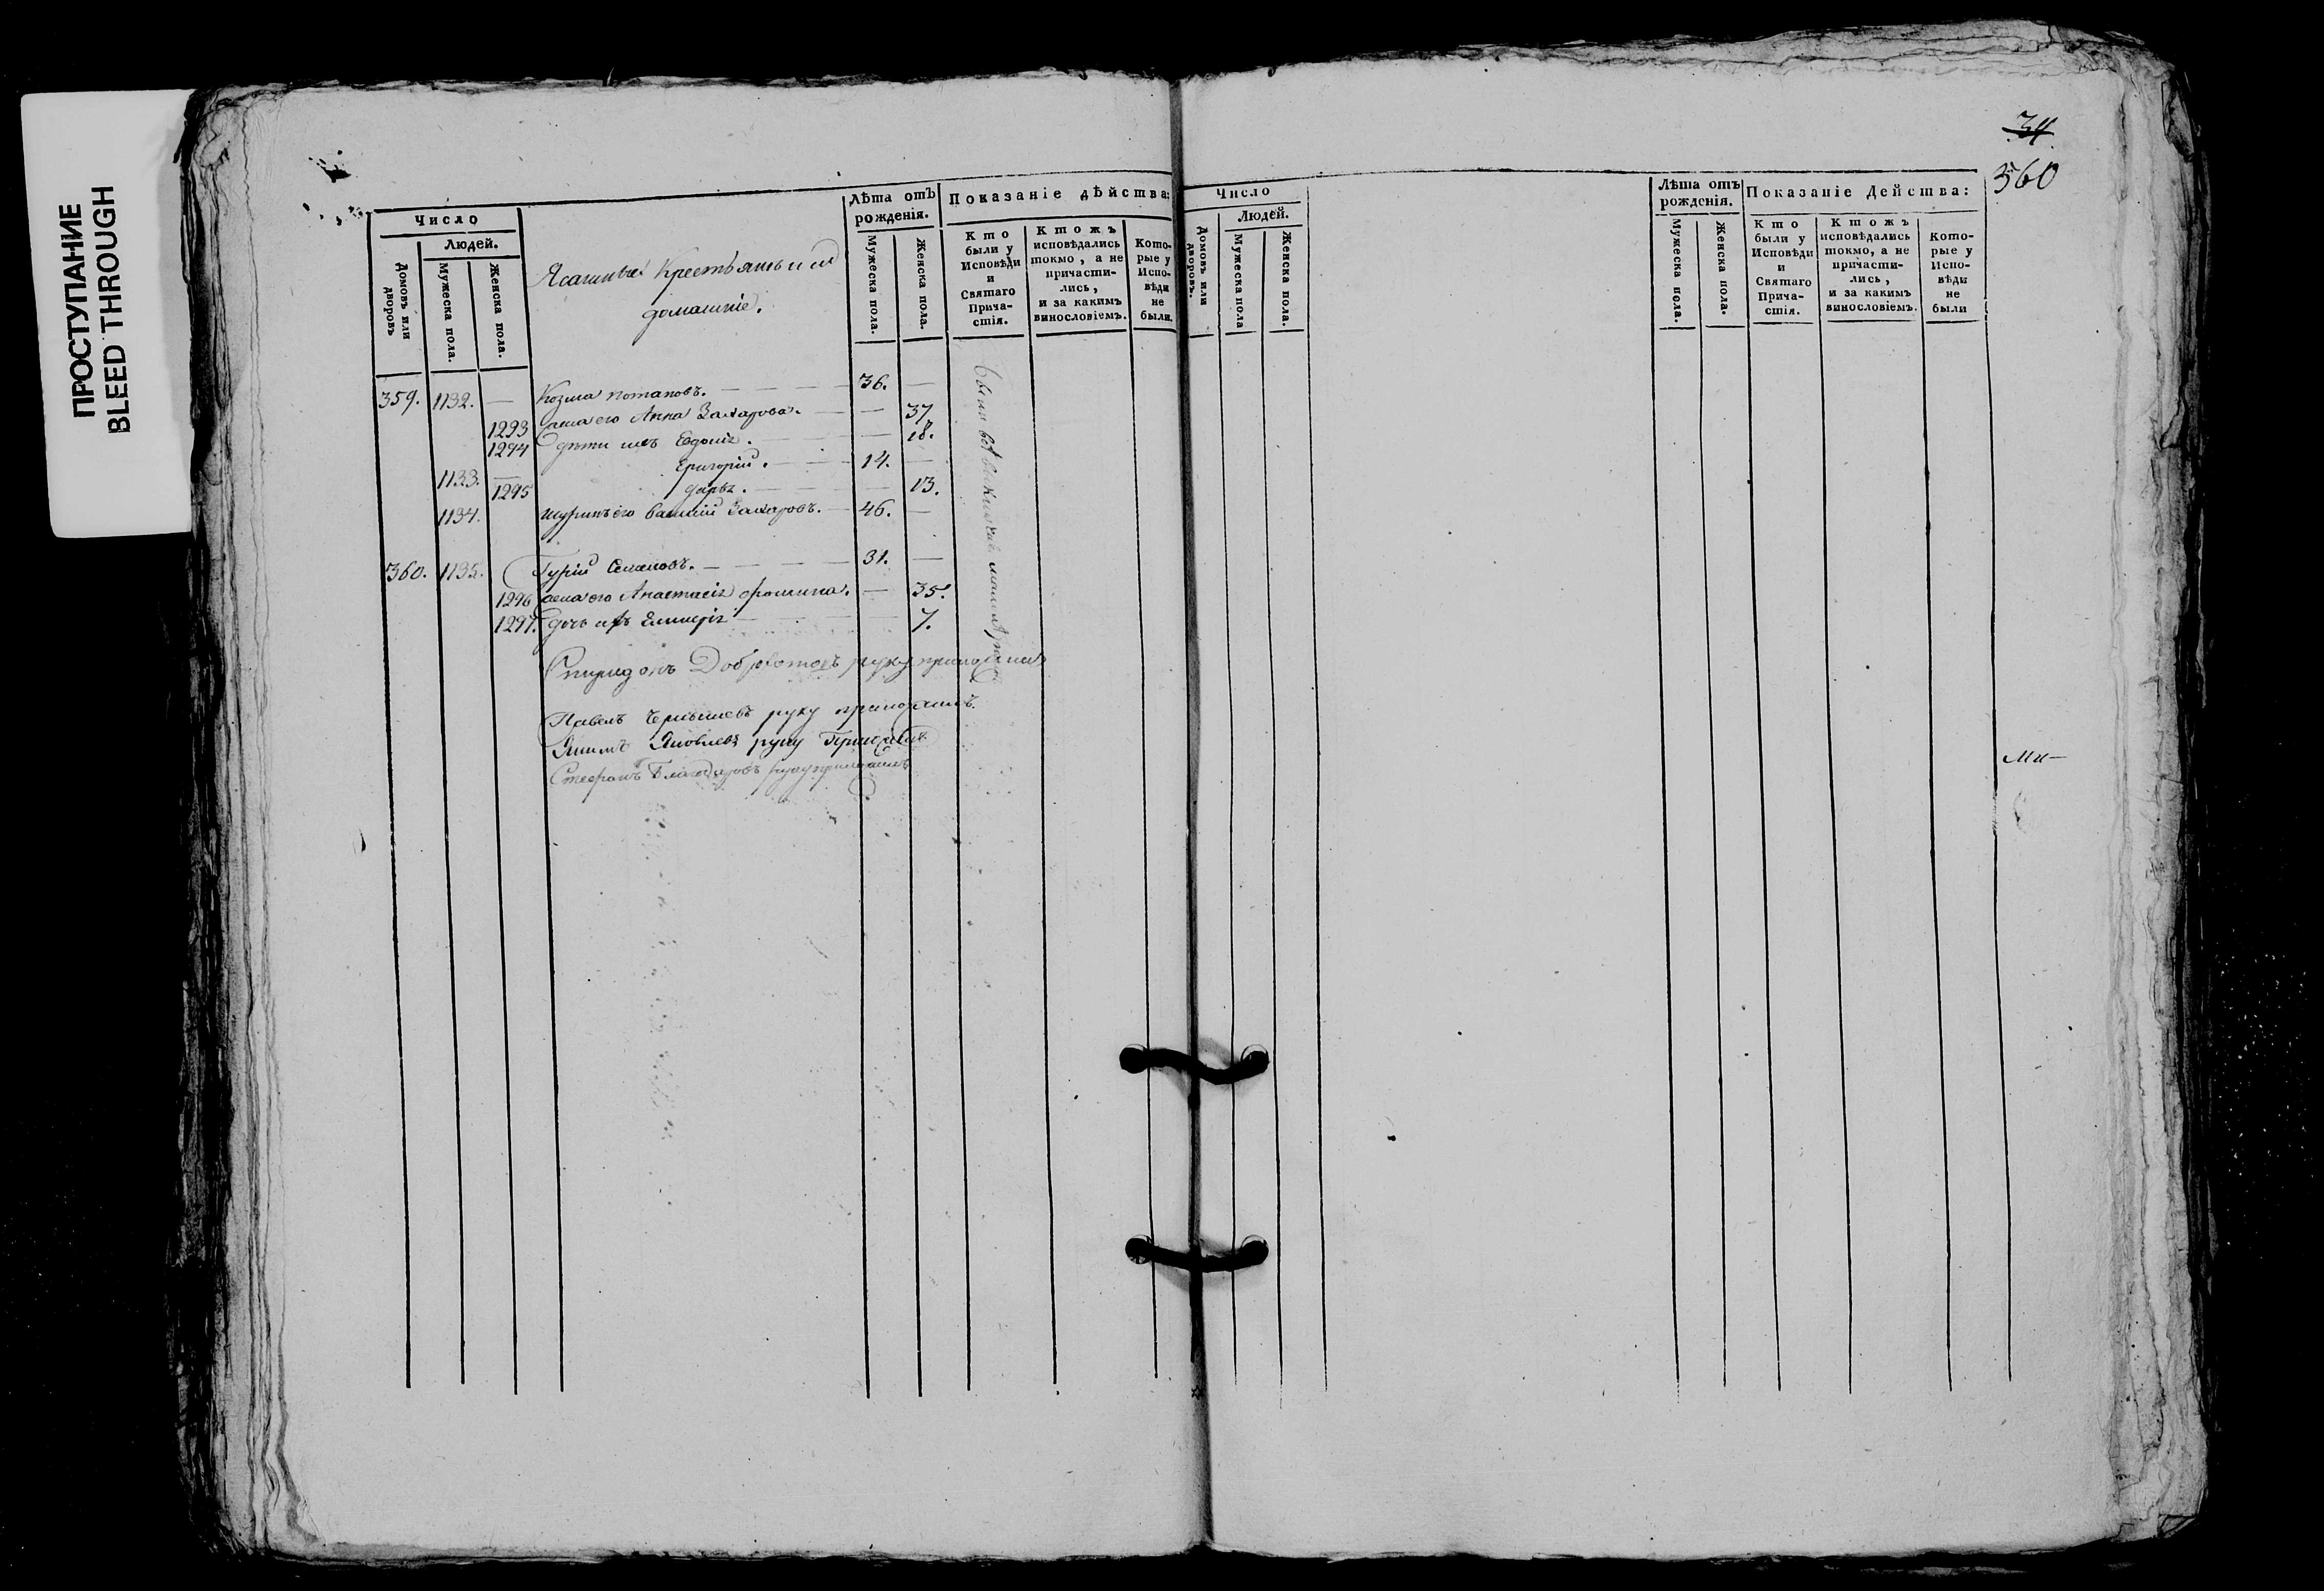 ПРОСТУПАНИЕ
BLEED THROUGH
34
360
Число
Людей.
Домовъ или дворовъ
Мужеска пола.
Женска пола.
Ясашные Крестьяне и ихъ
домашніе.
Лѣта отъ рожденія.
Мужеска пола.
Женска пола.
Показаніе дѣйства:
Кто были у Исповѣди и Святаго Прича-стія.
Ктожъ исповѣдались токмо, а не причасти-лись, и за какимъ винословіемъ.
Кото-рые у Испо-вѣди не были.
359. 1132. — Козма Потаповъ. — 36. —
1293 жена его Анна Захарова. — 37.
1294 дѣти ихъ Евдокія. — 18.
1133. — Григорій. — 14. —
1295 Дарья. — 13.
1134. шуринъ его Василій Захаровъ. — 46. —
360. 1135. Гурій Семеновъ. — 31. —
1296 жена его Анастасія Фомина. — 35.
1297. дочь ихъ — 7.
Спиридонъ руку приложилъ
Павелъ Чернышевъ руку приложилъ
Яковлевъ руку приложилъ
Стефанъ руку приложилъ
Число
Людей.
Домовъ или дворовъ.
Мужеска пола
Женска пола.
Лѣта отъ рожденія.
Мужеска пола.
Женска пола.
Показаніе Действа:
Кто были у Исповѣди и Святаго Прича-стія.
Ктожъ исповѣдались токмо, а не причасти-лись, и за какимъ винословіемъ.
Кото-рые у Испо-вѣди не были
ми-